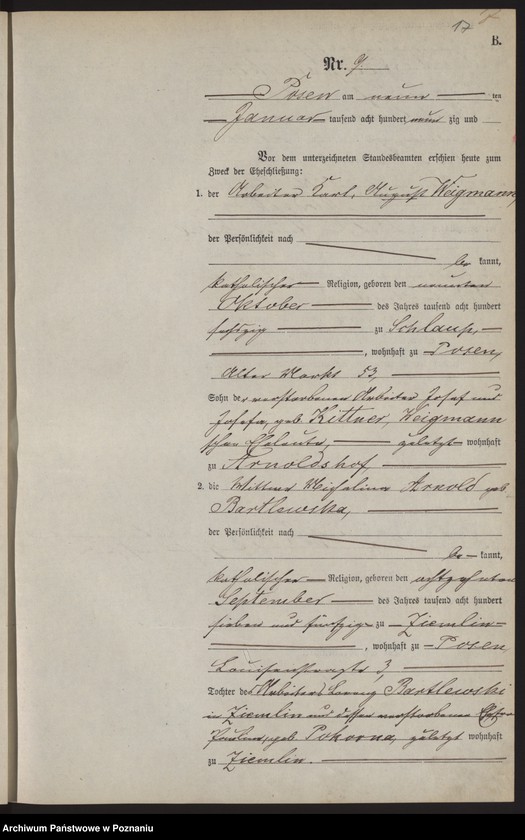 17
B.
Nr. 9
Posen am neun ten
Januar tausend acht hundert neun zig und
Vor dem unterzeichneten Standesbeamten erschien heute zum
Zweck der Eheschließung:
1. der Arbeiter Karl, August Weigmann,
der Persönlichkeit nach
be kannt,
katholischer Religion, geboren den neunten
Oktober des Jahres tausend acht hundert
sechzig zu Schlaup,
, wohnhaft zu Posen,
Alter Markt 53,
Sohn der verstorbenen Arbeiter Josef und
Josefa, geb. Kittner, Weigmann
schen Eheleute, zuletzt wohnhaft
zu Arnoldshof
2. die Wittwe Michalina Arnold geb.
Bartlewska,
der Persönlichkeit nach
be kannt,
katholischer Religion, geboren den achtzehnten
September des Jahres tausend acht hundert
sieben und fünfzig zu Ziemlin
, wohnhaft zu Posen,
Louisenstraße 3,
Tochter des Arbeiters Lorenz Bartlewski
in Ziemlin und dessen verstorbene
geb. Pokorna, zuletzt wohnhaft
zu Ziemlin.
Archiwum Państwowe w Poznaniu
www.szukajwarchiwach.gov.pl